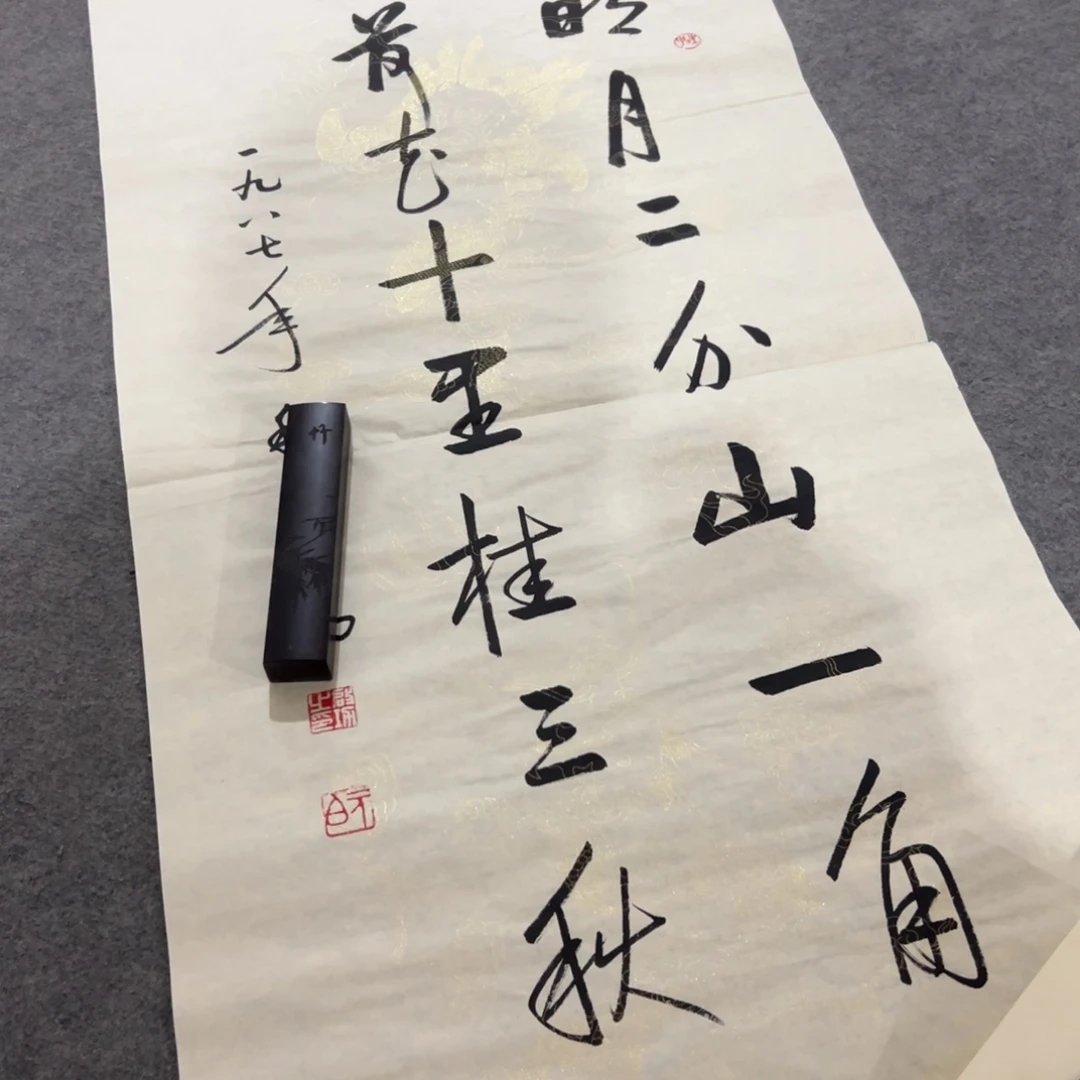 明月二分山一角
荷花十里桂三秋
一九八七年
竹